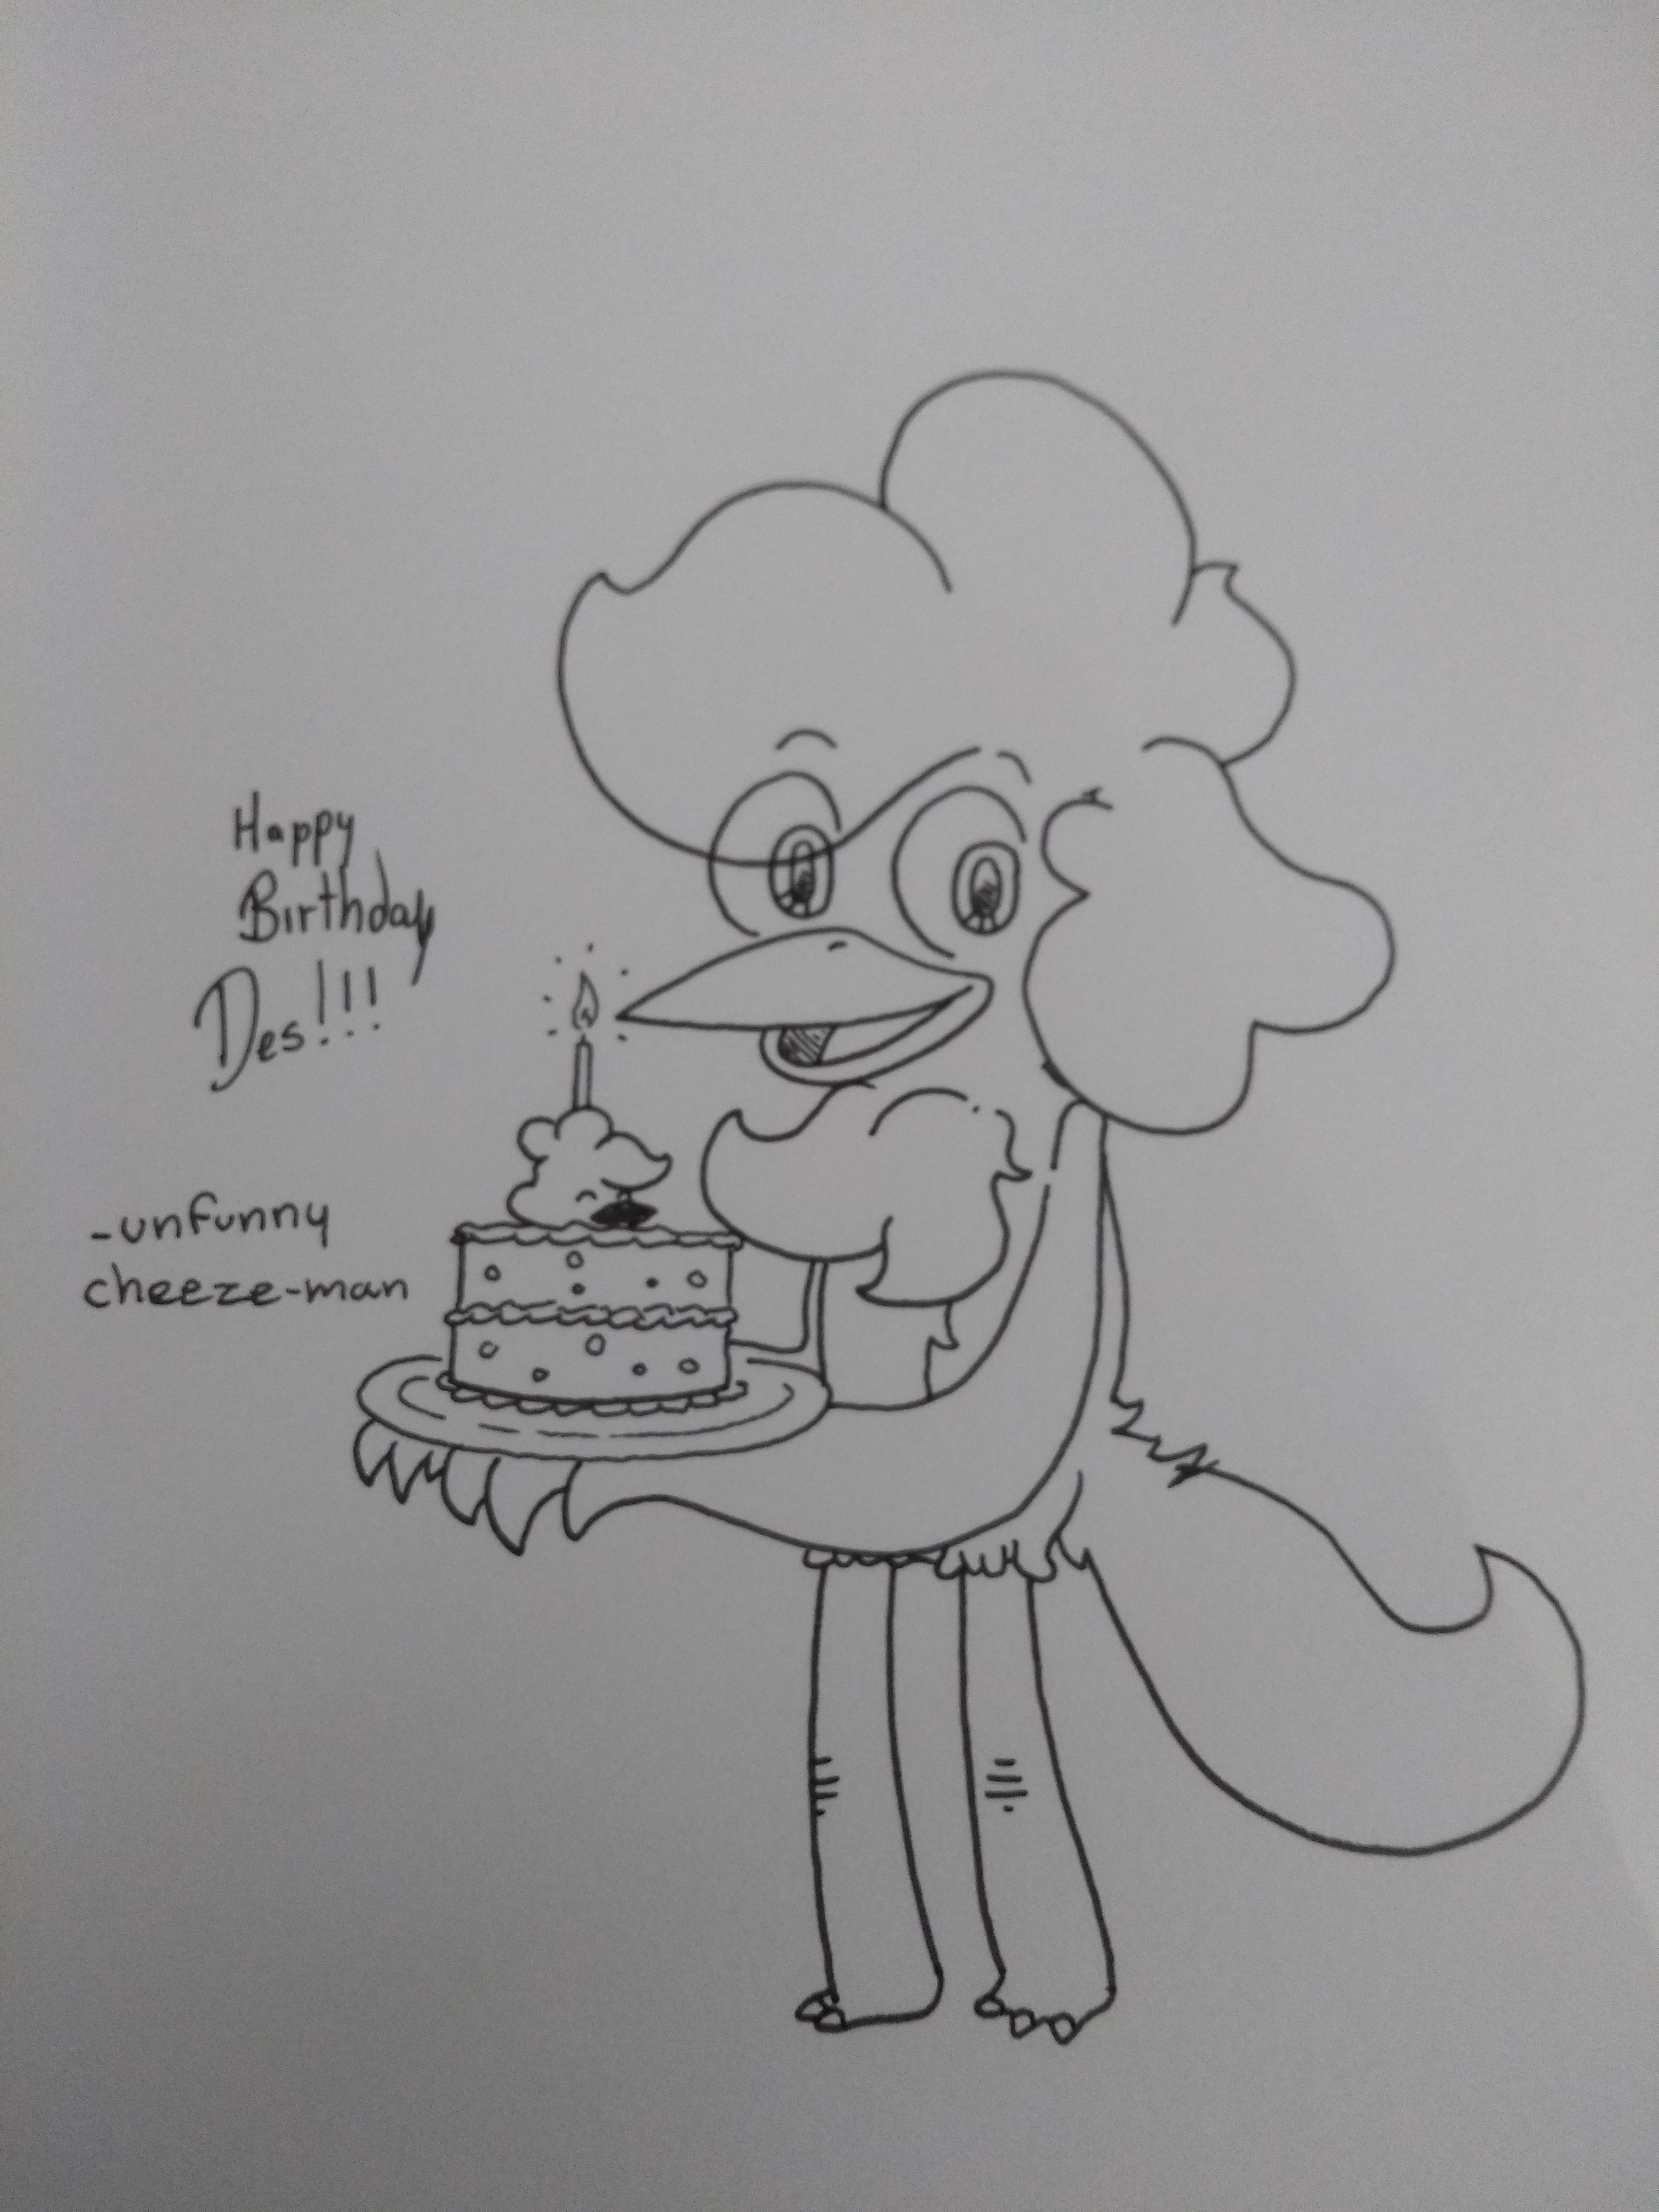 Happy
Birthday
Des!!!
-unfunny
cheeze-man